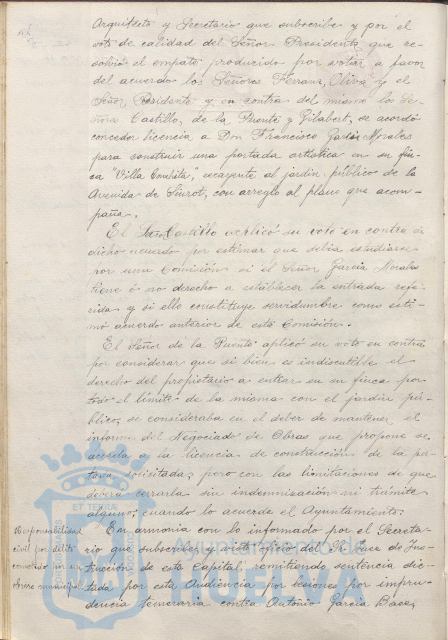 Arquitecto y Secretario que subscribe y por el
voto de calidad del Señor Presidente que re-
solvió el empate producido por votar a favor
del acuerdo los Señores Terrani, Oliva y el
Señor Presidente y en contra del mismo los Se-
ñores Castillo, de la Puente y Gilabert, se acordó
conceder licencia a Don Francisco García Morales
para construir una portada artística en su fin-
ca "Villa Conchita," recayente al jardín público de la
Avenida de Siurot, con arreglo al plano que acom-
paña.
El Sr. Castillo explicó su voto en contra de
dicho acuerdo por estimar que debía estudiarse
por una Comisión si el Señor García Morales
tiene ó no derecho a establecer la entrada refe-
rida y si ello constituye servidumbre como esti-
mó acuerdo anterior de esta Comisión.
El Señor de la Puente aplicó su voto en contra
por considerar que si bien es indiscutible el
derecho del propietario a entrar en su finca por
todo el límite de la misma con el jardín pú-
blico, se consideraba en el deber de mantener el
informe del Negociado de Obras que propone se
acceda a la licencia de construcción de la por-
tada solicitada, pero con las limitaciones de que
deberá cerrarla sin indemnización ni trámite
alguno, cuando lo acuerde el Ayuntamiento.
Responsabilidad
civil por delito
En armonía con lo informado por el Secreta-
rio que subscribe y visto oficio del Sr. Juez de Ins-
trucción de esta Capital, remitiendo sentencia dic-
tada por esta Audiencia por lesiones por impru-
dencia temeraria contra Antonio García Baez,
Ayuntamiento de
HUELVA